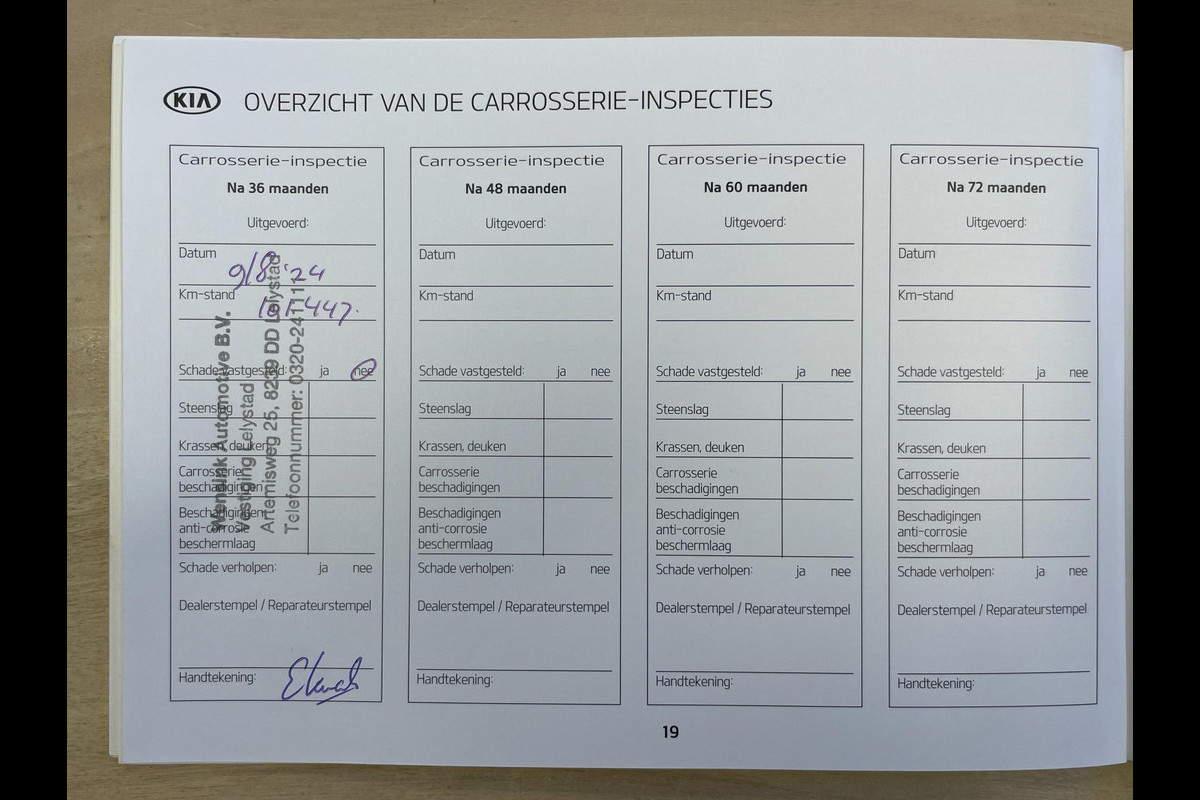 KIA OVERZICHT VAN DE CARROSSERIE-INSPECTIES
Carrosserie-inspectie
Na 36 maanden
Uitgevoerd:
Datum
9/8 '24
Km-stand
Schade vastgesteld: ja nee
Steenslag
Krassen, deuken
Carrosserie
beschadigingen
Beschadigingen
anti-corrosie
beschermlaag
Schade verholpen: ja nee
Dealerstempel / Reparateurstempel
Handtekening:
Wendink Automotive B.V.
Vestiging Lelystad
Artemisweg 25, 8239 DD Lelystad
Telefoonnummer: 0320-241111
Carrosserie-inspectie
Na 48 maanden
Uitgevoerd:
Datum
Km-stand
Schade vastgesteld: ja nee
Steenslag
Krassen, deuken
Carrosserie
beschadigingen
Beschadigingen
anti-corrosie
beschermlaag
Schade verholpen: ja nee
Dealerstempel / Reparateurstempel
Handtekening:
Carrosserie-inspectie
Na 60 maanden
Uitgevoerd:
Datum
Km-stand
Schade vastgesteld: ja nee
Steenslag
Krassen, deuken
Carrosserie
beschadigingen
Beschadigingen
anti-corrosie
beschermlaag
Schade verholpen: ja nee
Dealerstempel / Reparateurstempel
Handtekening:
Carrosserie-inspectie
Na 72 maanden
Uitgevoerd:
Datum
Km-stand
Schade vastgesteld: ja nee
Steenslag
Krassen, deuken
Carrosserie
beschadigingen
Beschadigingen
anti-corrosie
beschermlaag
Schade verholpen: ja nee
Dealerstempel / Reparateurstempel
Handtekening:
19